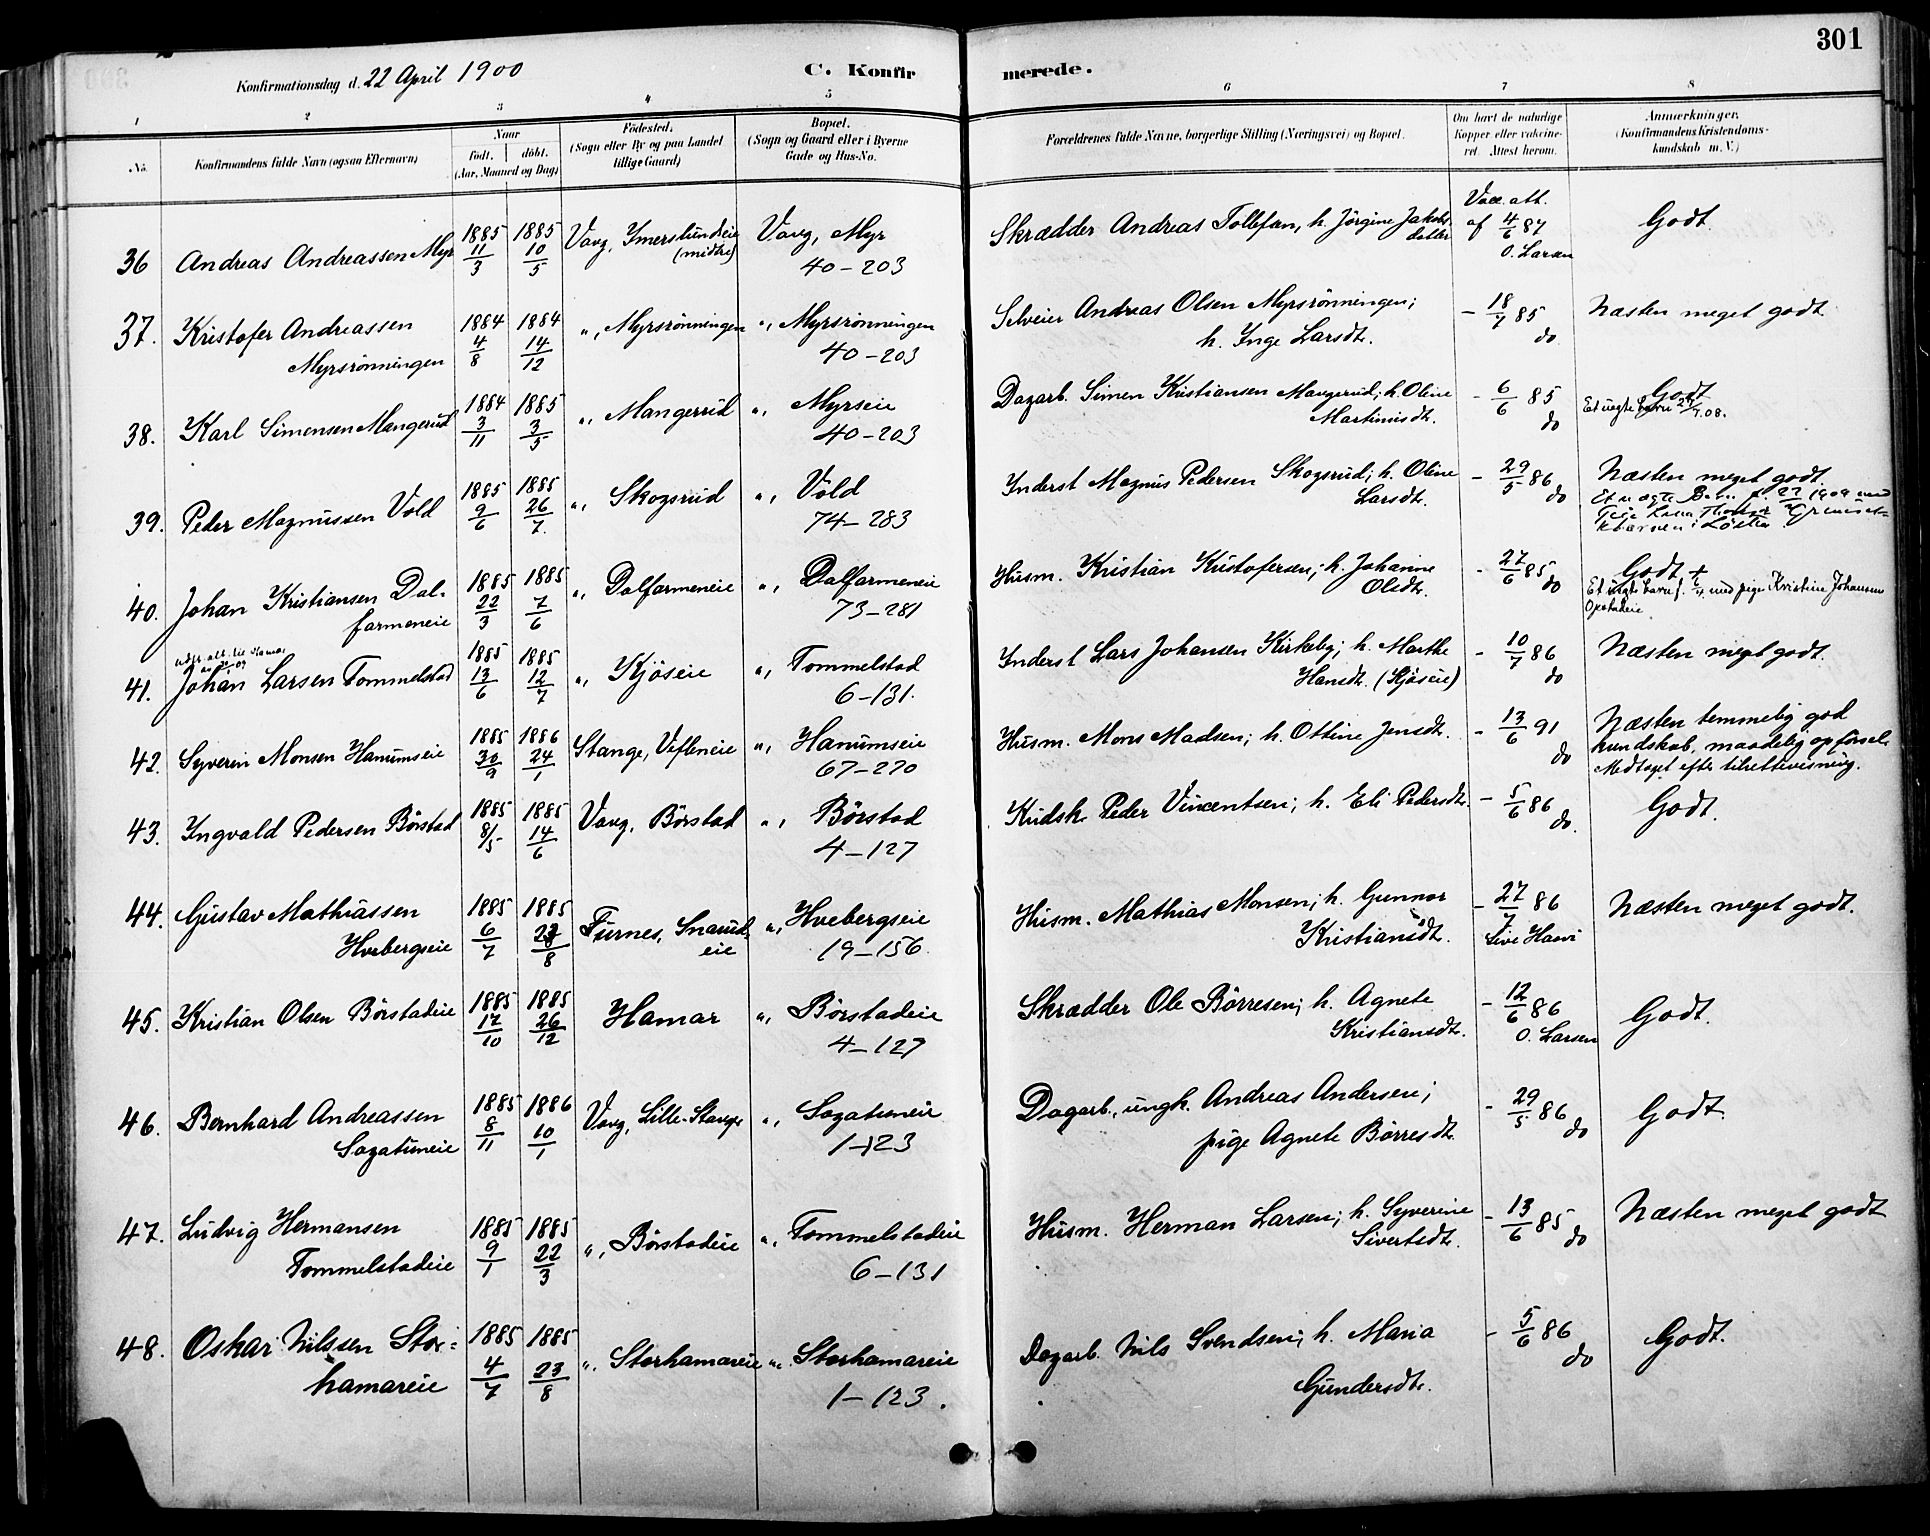 301
Konfirmationsdag d. 22 April 1900
C. Konfirmerede.
1 2 3 4 5 6 7 8
No. Konfirmandens fulde Navn (ogsaa Efternavn)
Naar født. døbt. (Aar, Maaned og Dag)
Fødested. (Sogn eller By og paa Landet tillige Gaard)
Bopæl. (Sogn og Gaard eller i Byerne Gade og Hus-No.
Forældrenes fulde Navne, borgerlige Stilling (Næringsvei) og Bopæl.
Om havt de naturlige Kopper eller vaccineret. Attest herom.
Anmærkninger. (Konfirmandens Kristendomskundskab m. V.)
36 Andreas Andreassen Myr 1885 11/3 1885 10/5 Vang, Imerslundeie (midtre) Vang, Myr 40-203 Skrædder Andreas Tollefsen, h. Jörgine Jakobsdatter Vacc. att. af 4/6 87 O. Larsen Godt.
37. Kristofer Andreassen Myrsrönningen 1884 4/8 1884 14/12 ", Myrsrönningen ", Myrsrönningen 40-203 Selveier Andreas Olsen Myrsrönningen; h. Inge Larsdtr. - 18/7 85 do Næsten meget godt
38. Karl Simensen Mangerud 1884 3/11 1885 3/5 ", Mangerud ", Myrseie 40-203 Dagarb. Simen Kristiansen Mangerud; h. Oline Martinusdtr. - 6/6 85 do Godt Et uægte barn 08.
39. Peder Magnussen Vold 1885 9/6 1885 26/7 ", Skogsrud ", Vold 74-283 Inderst Magnus Pedersen Skogsrud; h. Oline Larsdtr. - 29/5 86 do Næsten meget godt. Et uægte Barn f. 27 1909 med Pige i Løiten
40. Johan Kristiansen Dalfarmeneie 1885 22/3 1885 7/6 ", Dalfarmeneie ", Dalfarmeneie 73-281 Husm. Kristian Kristofersen; h. Johanne Olsdtr. - 27/6 85 do Godt + Et uægte barn f. med pige Kristine Johansen
41. Johan Larsen Tommelstad 1885 13/6 1885 12/7 ", Kjöseie ", Tommelstad 6-131. Inderst Lars Johansen Kirkeby; h. Marthe Hansdtr. (Kjöseie) - 10/7 86 do Næsten meget godt.
42. Syverin Monsen Hanumseie 1885 30/9 1886 24/1 Stange, Vifleneie ", Hanumseie 67-270 Husm. Mons Madsen; h. Ottine Jensdtr. - 13/6 91 do Næsten temmelig god kundskab, maadelig opførsel. Medtaget efter tilrettevisning.
43. Ingvald Pedersen Börstad 1885 8/5 1885 14/6 Vang, Börstad ", Börstad 4-127 Kudsk Peder Vincentsen; h. Eli Pedersdtr. - 5/6 86 do. Godt.
44. Gustav Mathiassen Hvebergseie 1885 6/7 1885 23/8 Furnes, Snarudeie ", Hvebergseie 19-156. Husm. Mathias Monsen; h. Gunnor Kristiansdtr. - 27/7 86 Næsten meget godt.
45. Kristian Olsen Börstadeie 1885 12/10 1885 26/12 Hamar ", Börstadeie 4-127 Skrædder Ole Börresen; h. Agnete Kristiansdtr. - 12/6 86 O. Larsen Godt.
46. Bernhard Andreassen Sagatuneie 1885 8/11 1886 10/1 Vang, Lille-Stange ", Sagatuneie 1-123 Dagarb., ungk. Andreas Andersen; pige Agnete Börresdtr. - 29/5 86 do Godt
47. Ludvig Hermansen Tommelstadeie 1885 9/1 1885 22/3 ", Börstadeie ", Tommelstadeie 6-131 Husm. Herman Larsen; h. Syverine Sivertsdtr. - 13/6 85 do Næsten meget godt
48. Oskar Nilssen Storhamareie 1885 4/7 1885 23/8 ", Storhamareie ", Storhamareie 1-123. Dagarb. Nils Svendsen; h. Maria Gundersdtr. - 5/6 86 do Godt.